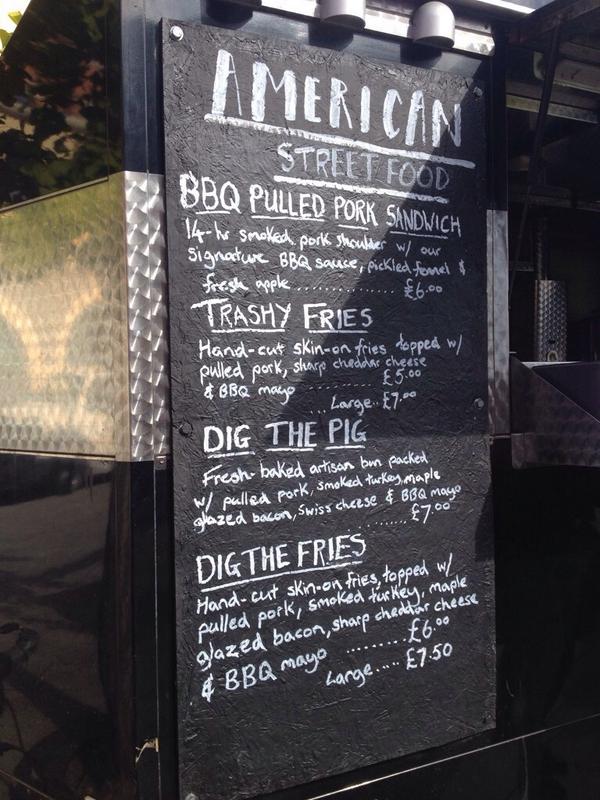 AMERICAN
STREET FOOD
BBQ PULLED PORK SANDWICH
14-hr smoked pork shoulder w/ our
Signature BBQ sauce, pickled fennel &
fresh apple .............. £6.00
TRASHY FRIES
Hand-cut skin-on fries topped w/
pulled pork, sharp cheddar cheese
& BBQ mayo ............ £5.00
... Large.. £7.00
DIG THE PIG
Fresh-baked artisan bun packed
w/ pulled pork, smoked turkey, maple
glazed bacon, swiss cheese & BBQ mayo
......... £7.00
DIG THE FRIES
Hand-cut skin-on fries, topped w/
pulled pork, smoked turkey, maple
glazed bacon, sharp cheddar cheese
& BBQ mayo .......... £6.00
Large..... £7.50